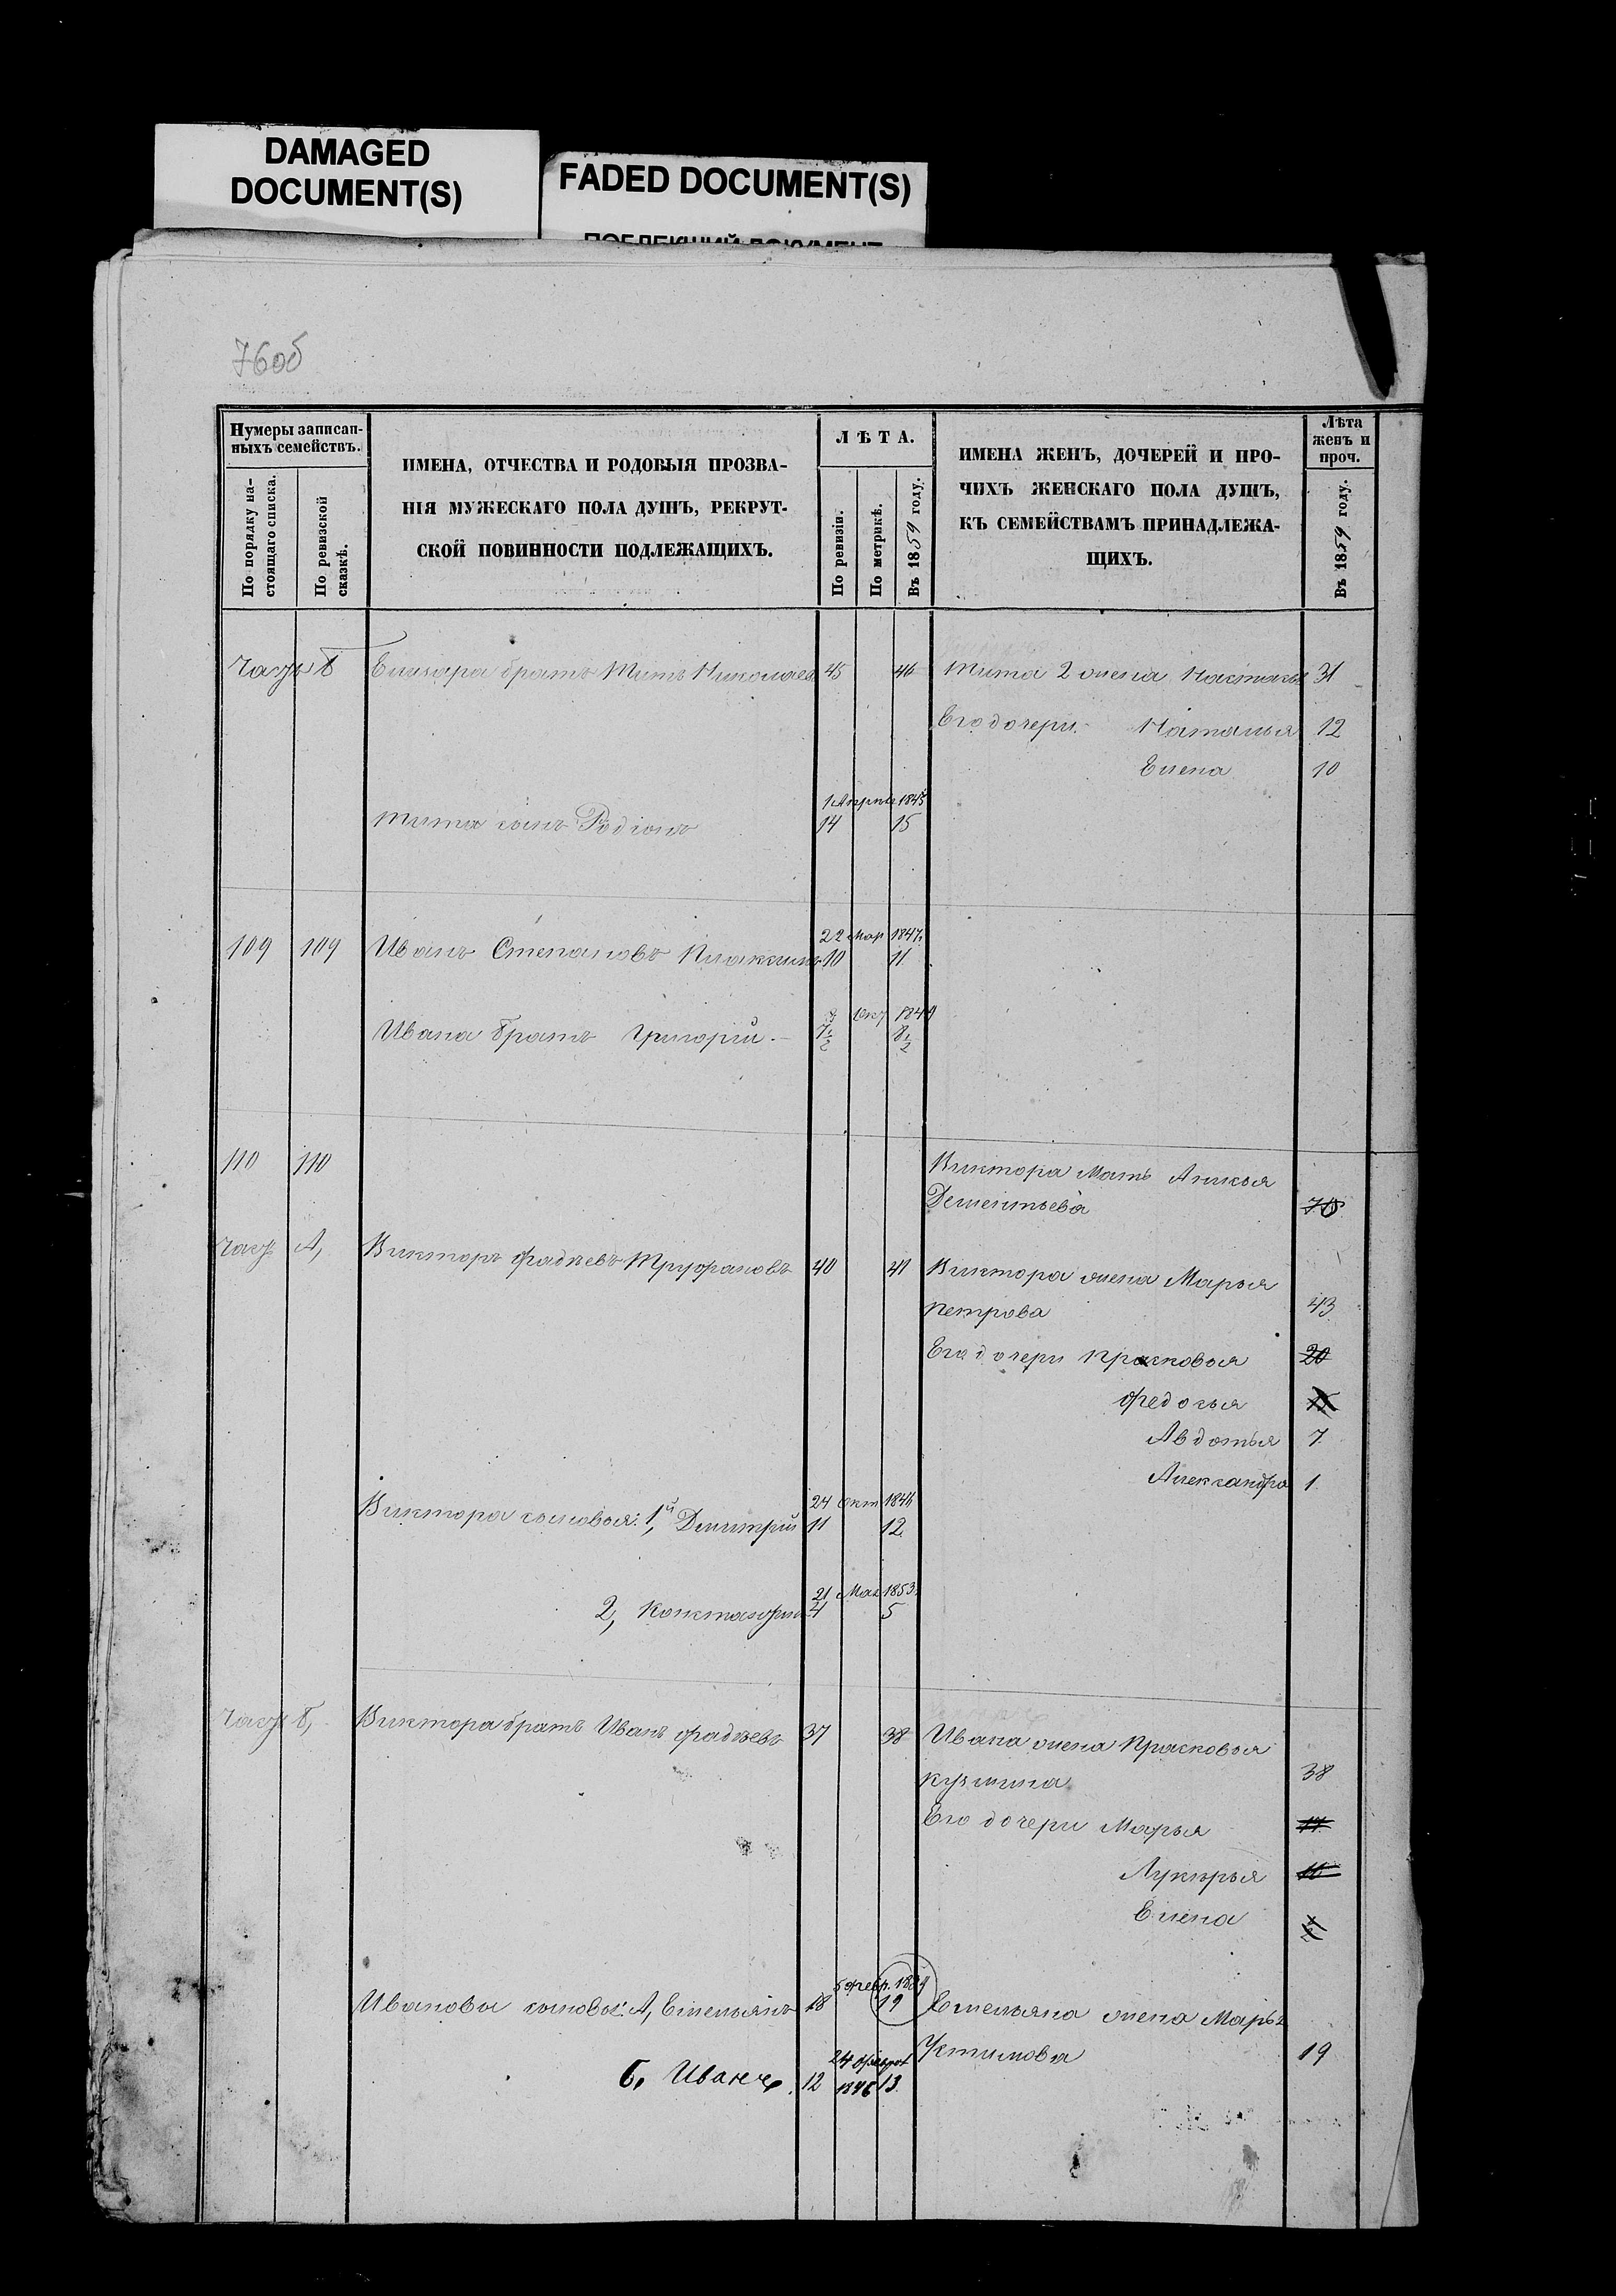 DAMAGED
DOCUMENT(S)
FADED DOCUMENT(S)
76об
Нумеры записан-
ныхъ семействъ.
По порядку на-
стоящаго списка.
По ревизской
сказкѣ.
ИМЕНА, ОТЧЕСТВА И РОДОВЫЯ ПРОЗВА-
НІЯ МУЖЕСКАГО ПОЛА ДУШЪ, РЕКРУТ-
СКОЙ ПОВИННОСТИ ПОДЛЕЖАЩИХЪ.
ЛѢТА.
По ревизіи.
По метрикѣ.
Въ 1859 году.
ИМЕНА ЖЕНЪ, ДОЧЕРЕЙ И ПРО-
ЧИХЪ ЖЕНСКАГО ПОЛА ДУШЪ,
КЪ СЕМЕЙСТВАМЪ ПРИНАДЛЕЖА-
ЩИХЪ.
Лѣта
женъ и
проч.
Въ 1859 году.
Часть Б Елизара братъ Титъ Николаев 45 46 Тита 2 жена Настасья 31
Его дочери Наталья 12
Елена 10
1 Апрѣля 1843
Тита сынъ Родіонъ 14 15
22 Мар 1847
109 109 Иванъ Степановъ 10 11
Окт 1849
Ивана братъ Григорій 7 1/2 8 1/2
110 110 Виктора Мать
Дементьева
Часть А, Викторъ Фадѣевъ Труфановъ 40 41 Виктора жена Марья
Петрова 43
Его дочери Прасковья 20
Федосья
Авдотья 7
Александра 1
24 Окт 1846
Виктора сыновья: 1й, Дмитрий 11 12
21 Мая 1853
2, Константинъ 4 5
Часть Б, Виктора братъ Иванъ Фадѣевъ 37 38 Ивана жена Прасковья
Кузмина 38
Его дочери Марья 17
Лукерья 16
Елена
5 Февр. 1839
Ивановы сыновья: А, Емельянъ 18 19 Емельяна жена Марья
Устинова 19
24 Феврал
Б, Иванъ 12 1846 13